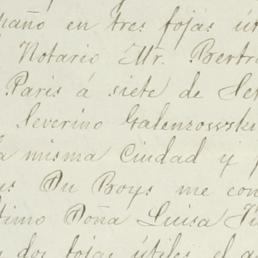 paño en tres fojas út
Notario Mr. Bertr
Paris á siete de Se
Severino Galenzowske
a misma Ciudad y p
us Du Boys me con
timo Doña Luisa
dos fojas útiles el a